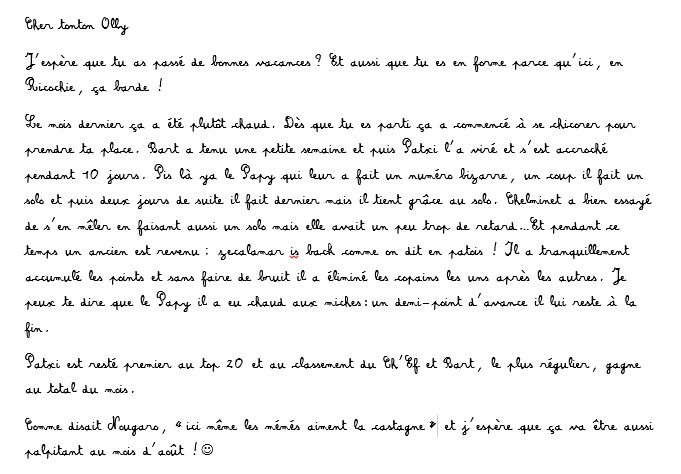 Cher tonton Olly
J'espère que tu as passé de bonnes vacances ? Et aussi que tu es en forme parce qu'ici, en
Ricochie, ça barde !
Le mois dernier ça a été plutôt chaud. Dès que tu es parti ça a commencé à se chicorer pour
prendre ta place. Bart a tenu une petite semaine et puis Patxi l'a viré et s'est accroché
pendant 10 jours. Pis là ya le Papy qui leur a fait un numéro bizarre, un coup il fait un
solo et puis deux jours de suite il fait dernier mais il tient grâce au solo. Chelminet a bien essayé
de s'en mêler en faisant aussi un solo mais elle avait un peu trop de retard...Et pendant ce
temps un ancien est revenu : zecalamar is back comme on dit en patois ! Il a tranquillement
accumulé les points et sans faire de bruit il a éliminé les copains les uns après les autres. Je
peux te dire que le Papy il a eu chaud aux miches: un demi-point d'avance il lui reste à la
fin.
Patxi est resté premier au top 20 et au classement du Ch'Ef et Bart, le plus régulier, gagne
au total du mois.
Comme disait Nougaro, " ici même les mémés aiment la castagne " et j'espère que ça va être aussi
palpitant au mois d'août ! ☺